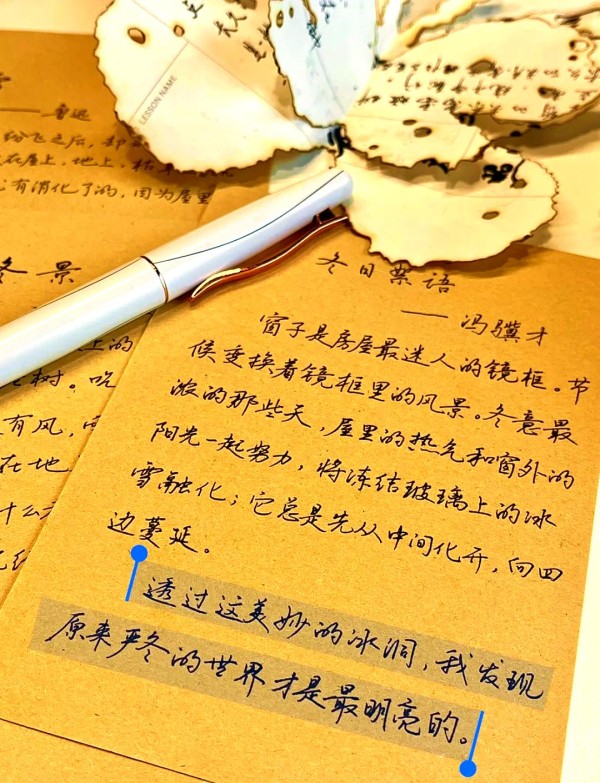 LESSON NAME
——鲁迅
纷飞之后,却
在屋上,地上,枯
有消化了的,因为屋里
冬景
上的
树。吃
有风,
在地
什么
冬日絮语
——冯骥才
窗子是房屋最迷人的镜框。节
候变换着镜框里的风景。冬意最
浓的那些天,屋里的热气和窗外的
阳光一起努力,将冻结玻璃上的冰
雪融化;它总是先从中间化开,向四
边蔓延。
透过这美妙的冰洞,我发现
原来严冬的世界才是最明亮的。